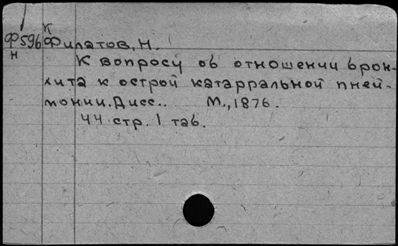 К
Ф596 Филатов, Н.
Н
К вопросу об отношении брон-
хита к острой катарральной пней-
монии. Дисс.. М., 1876.
44 стр. 1 таб.